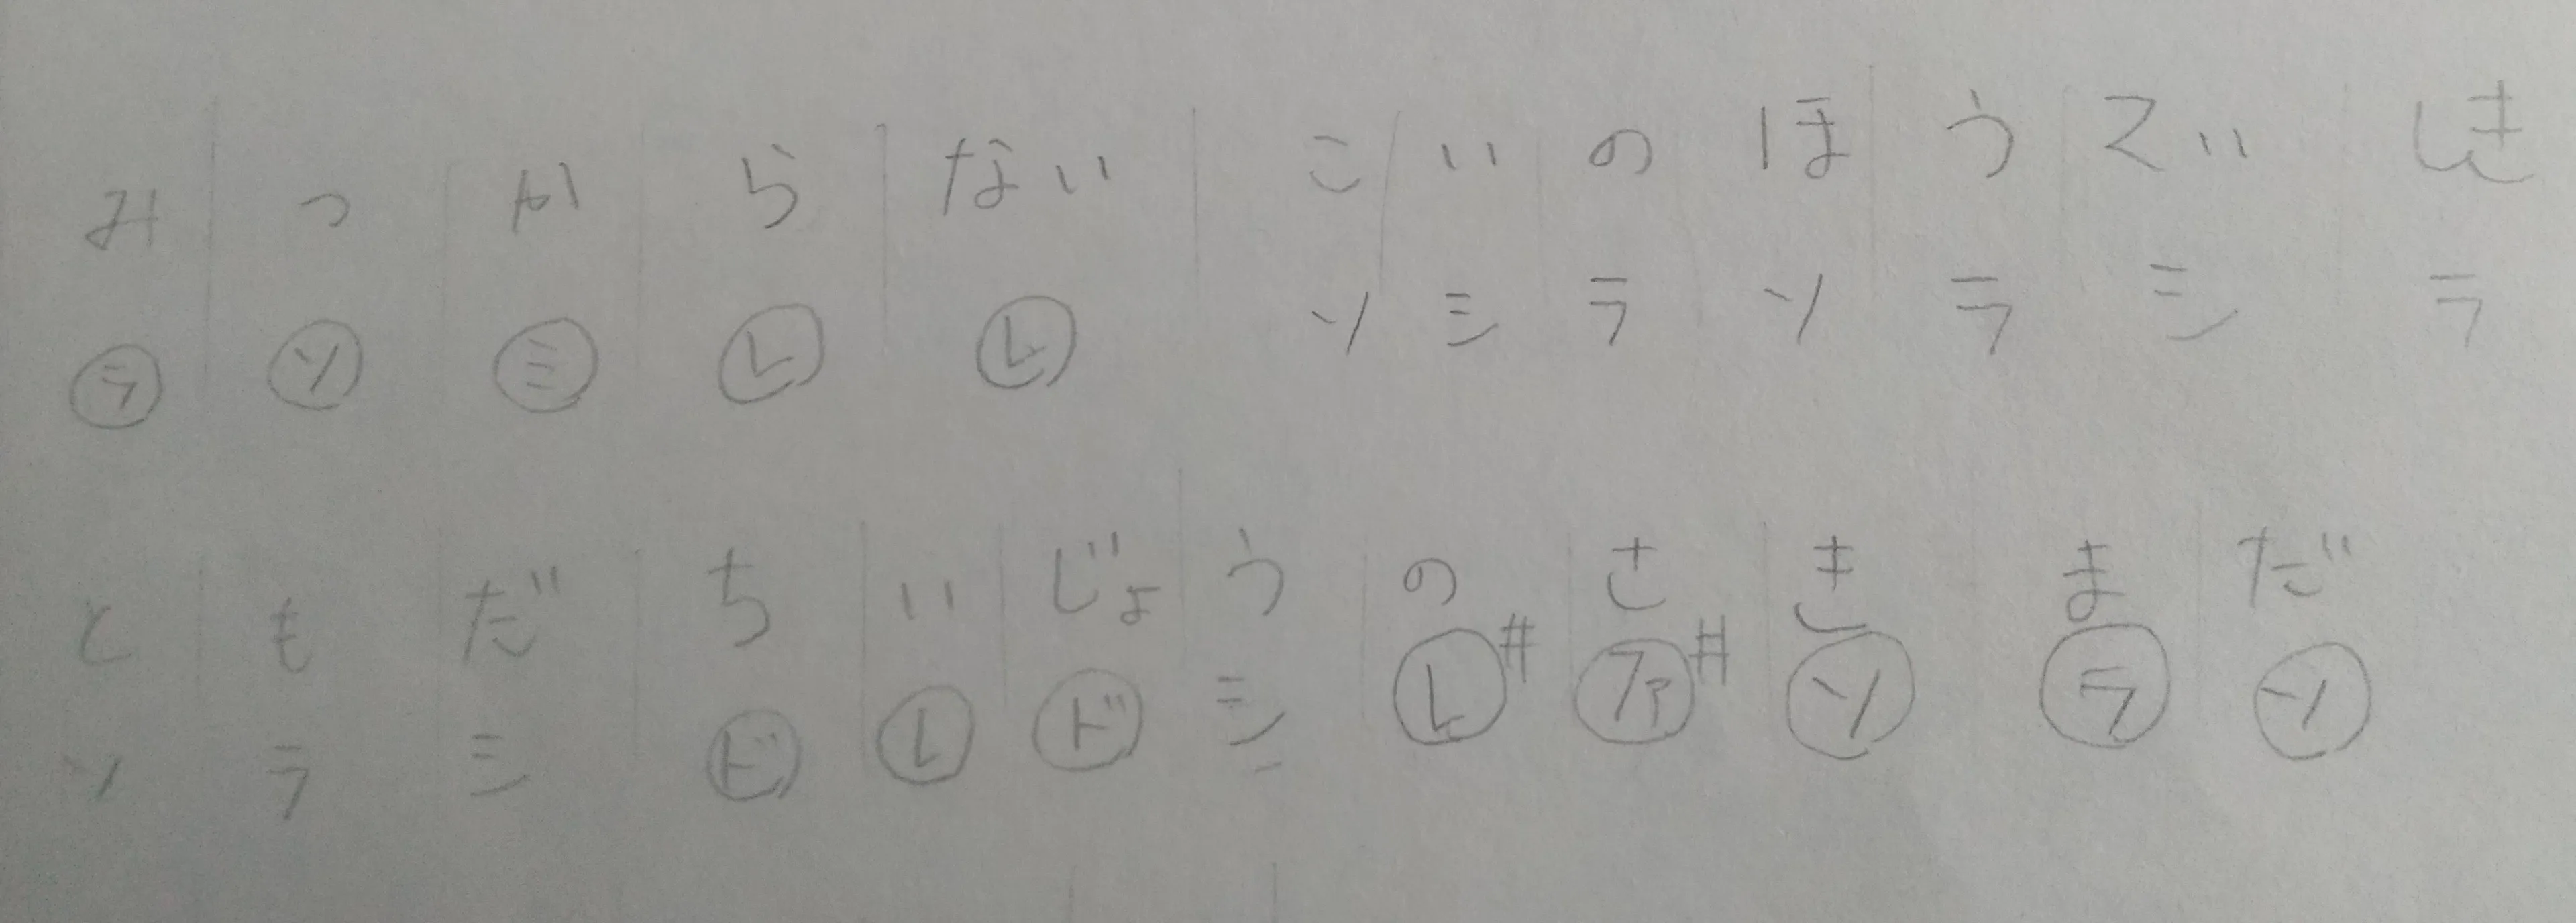 み っ か ら ない こ い の ほ う てい しき
ラ ソ ミ レ レ ソ シ ラ ソ ラ シ ラ
と も だ ち い じょ う の さ き ま だ
ソ ラ シ ド レ ド シ レ# ファ# ソ ラ ソ